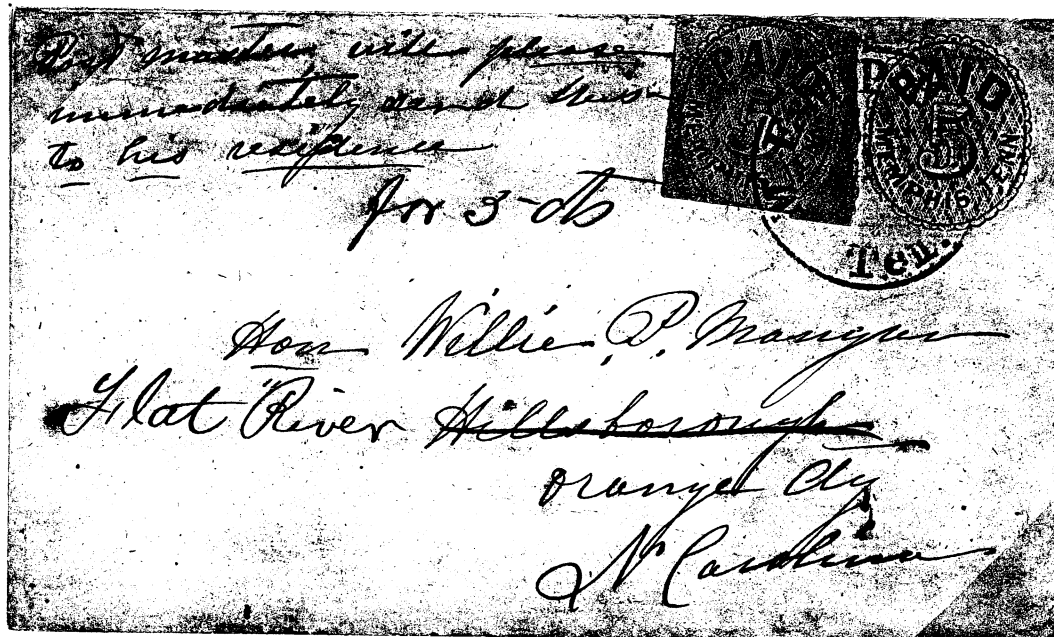 Post master will please
immediately send this
to his residence
for 5 cts
PAID
5
PAID
5
MEMPHIS, TENN.
Ten.
Hon Willie P. Mangum
Flat River Hillsborough
Orange Cty
N Carolina